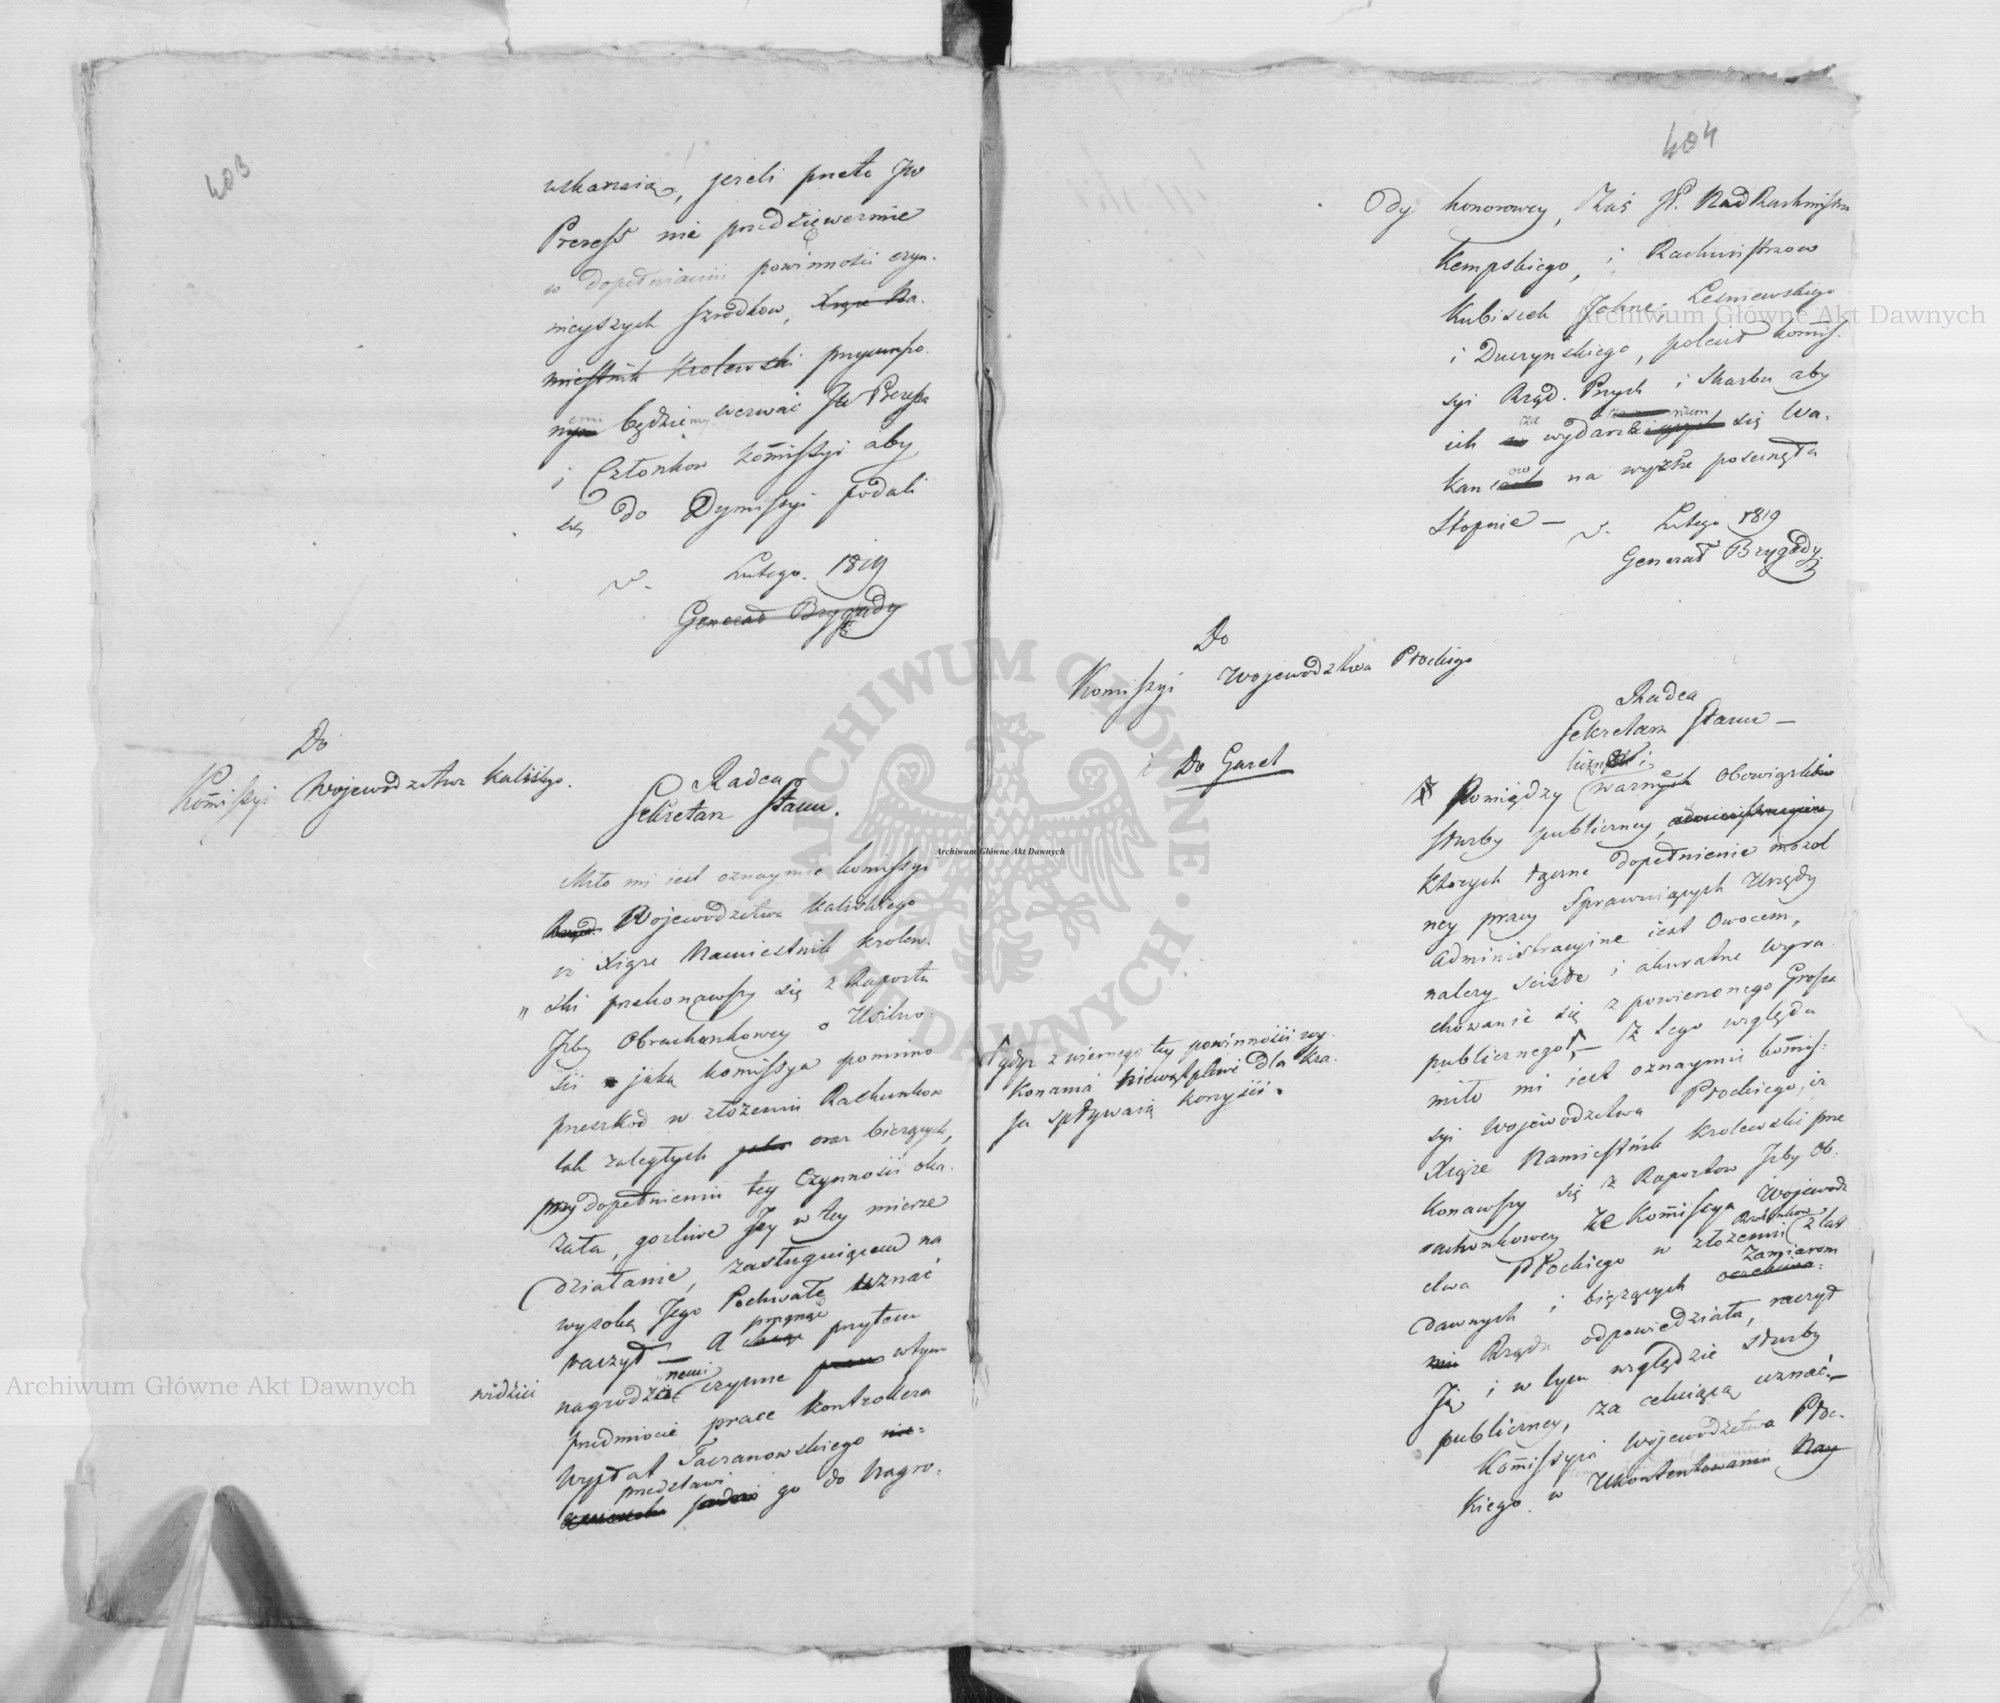 403
wskazaią, jeżeli przeto JW
Prezess nie przedsięwezmie
w dopełnianiu powinności czyn-
nieyszych srzodkow, Xiąże Na-
miestnik Krolewski przymuszo-
będziemy wezwać JW Prezesa
i Członkow Kommissyi aby
się do Dymissyi podali
Lutego 1819
Generał Brygady
Do
Kommissyi Wojewodztwa Kaliskgo.
Radca
Sekretarz Stanu.
Miło mi iest oznaymić Kommissyi
Wojewodztwa Kaliskiego
iż Xiąże Namiestnik Krolew-
ski przekonawszy się z Raportu
Izby Obrachunkowey o Usilno-
ści jaką Kommissya pomimo
przeszkod w złożeniu Rachunkow
tak zaległych oraz bieżących,
przy dopełnieniu tey Czynności oka-
zała, gorliwe Jey w tey mierze
działanie, zasługuiącem na
wysoką Jego Pochwałę uznać
raczył — A pragnąc przytem
widzieć
nagrodzonemi czynne w tym
przedmiocie prace Kontrolera
Wypłat Taczanowskiego
przedstawi go do Nagro-
404
Ody honorowey, Zaś P. NadRachmistrza
Kempskiego, i Rachmistrzow
Kubiszek Johne, Lesniewskiego
i Duczynskiego, polecił Kommis-
syi Rząd. Przych i Skarbu aby
ich za wydarzeniem się Wa-
kansow na wyższe posunęła
Stopnie —
Lutego 1819
Generał Brygady
Do
Kommissyi Wojewodztwa Płockiego
Radca
Sekretarz Stanu —
Do Gazet
Pomiędzy licznemi ważne Obowiązkow
służby publiczney
Ktorych dopełnienie mozol
ney pracy Sprawuiących Urzędy
Administracyine iest Owocem,
należy ścisłe i akuratne Wyra
chowanie się z powierzonego Grosza
publicznego, — Z tego względu
miło mi iest oznaymić Kommis-
syi Wojewodztwa Płockiego, iż
Xiąże Namiestnik Krolewski prze
konawszy się z Raportow Izby Ob-
rachunkowey że Kommissya Wojewodz
ctwa Płockiego w złożeniu Rachunkow z lat
Dawnych i bieżących Zamiarom
Rządu odpowiedziała, raczył
Ją i w tym względzie służby
publiczney, za celuiącą uznać. —
Kommissyia Wojewodztwa Płoc-
kiego w Ukontentowaniu Nay
gdyż z wiernego tey powinności wy-
konania niewątpliwe dla Kra-
ju spływaią korzyści.
Archiwum Główne Akt Dawnych
Archiwum Główne Akt Dawnych
Archiwum Główne Akt Dawnych
ARCHIWUM GŁÓWNE AKT DAWNYCH